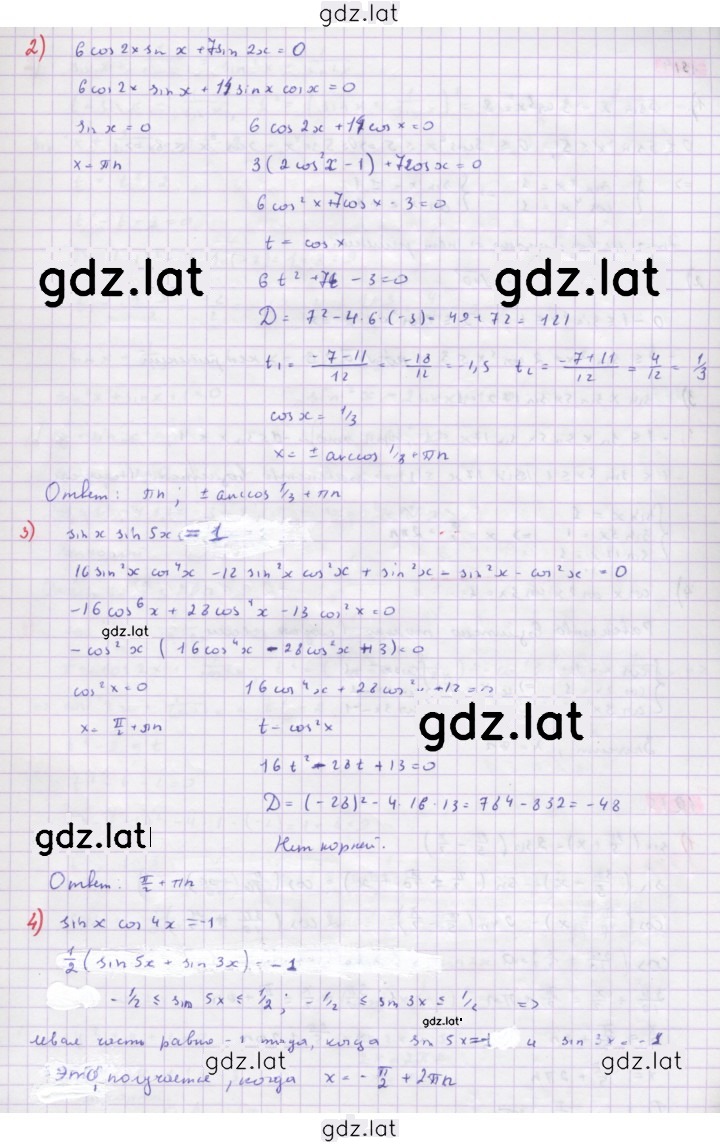 gdz.lat
2) 6 cos 2x sin x + 7 sin 2x = 0
6 cos 2x sin x + 14 sin x cos x = 0
sin x = 0 6 cos 2x + 14 cos x = 0
x = πn 3(2 cos²x - 1) + 7 cos x = 0
6 cos²x + 7 cos x - 3 = 0
t = cos x
gdz.lat gdz.lat
6t² + 7t - 3 = 0
D = 7² - 4·6·(-3) = 49 + 72 = 121
t₁ = (-7-11)/12 = -18/12 = -1,5 t₂ = (-7+11)/12 = 4/12 = 1/3
cos x = 1/3
x = ± arccos 1/3 + πn
Ответ: πn; ± arccos 1/3 + πn
3) sin x sin 5x = 1
16 sin²x cos⁴x - 12 sin²x cos²x + sin²x - sin²x - cos²x = 0
-16 cos⁶x + 28 cos⁴x - 13 cos²x = 0
gdz.lat
-cos²x (16 cos⁴x - 28 cos²x + 13) = 0
cos²x = 0 16 cos⁴x + 28 cos² + 13 = 0
x = π/2 + πn t - cos²x
gdz.lat
16t² - 28t + 13 = 0
D = (-28)² - 4·16·13 = 784 - 832 = -48
gdz.lat
Нет корней.
Ответ: π/2 + πn
4) sin x cos 4x = -1
1/2 (sin 5x + sin 3x) = -1
-1/2 ≤ sin 5x ≤ 1/2; -1/2 ≤ sin 3x ≤ 1/2 =>
gdz.lat
левая часть равно -1 тогда, когда sin 5x = -1 и sin 3x = -1
gdz.lat gdz.lat
Это получается, когда x = -π/2 + 2πn
gdz.lat